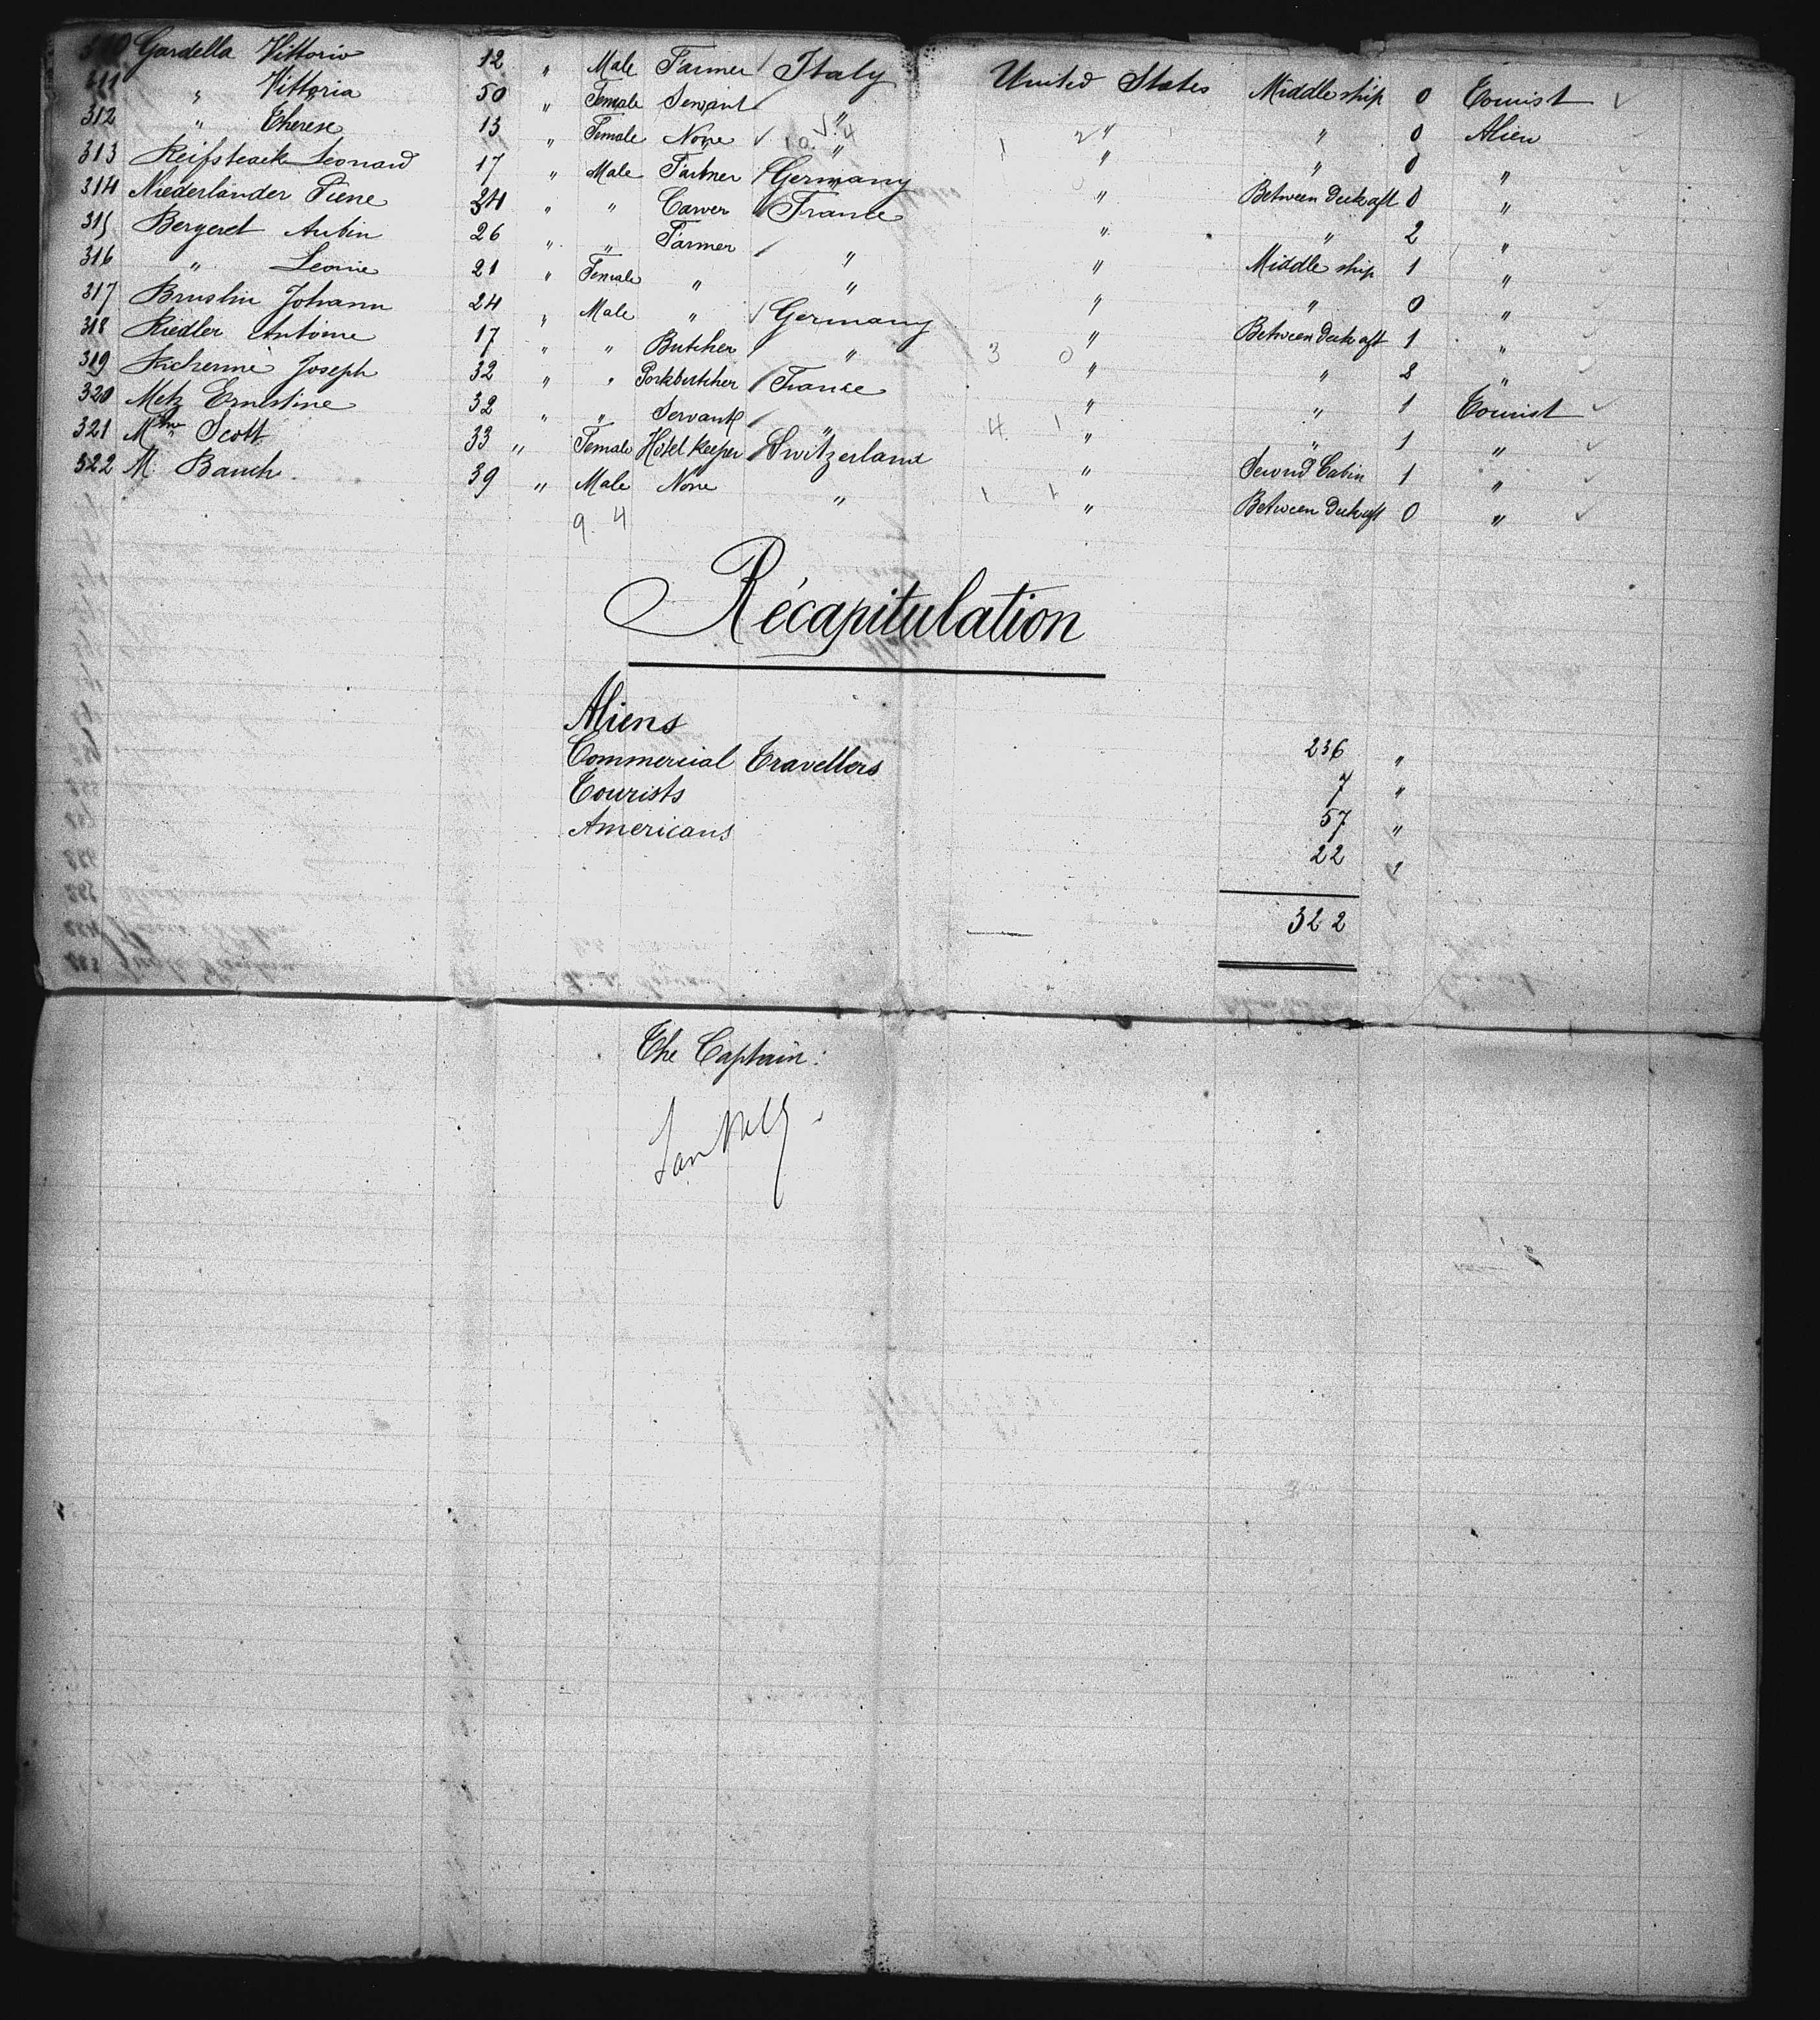 310 Gardella Vittorio 12 " Male Farmer Italy United States Middle ship 0 Tourist
311 " Vittoria 50 " Female Servant " " " 0 Alien
312 " Therese 13 " Female None " " " 0 "
313 Reifsteack Leonard 17 " Male Farmer Germany " Between deck aft 0 "
314 Niederlander Piene 24 " " Carver France " " 2 "
315 Bergeret Aubin 26 " " Farmer " " Middle ship 1 "
316 " Leonie 21 " Female " " " " 0 "
317 Johann 24 " Male " Germany " Between deck aft 1 "
318 Riedler Antoine 17 " " Butcher " " " 2 "
319 Joseph 32 " " Porkbutcher France " " 1 Tourist
320 Metz Ernestine 32 " " Servant " " " 1 "
321 Mme Scott 33 " Female Hotel Keeper Switzerland " Second Cabin 1 "
322 M. Bauch 39 " Male None " " Between deck aft 0 "
9. 4
Récapitulation
Aliens 236 "
Commercial Travellers 7 "
Tourists 57 "
Americans 22 "
322
The Captain: